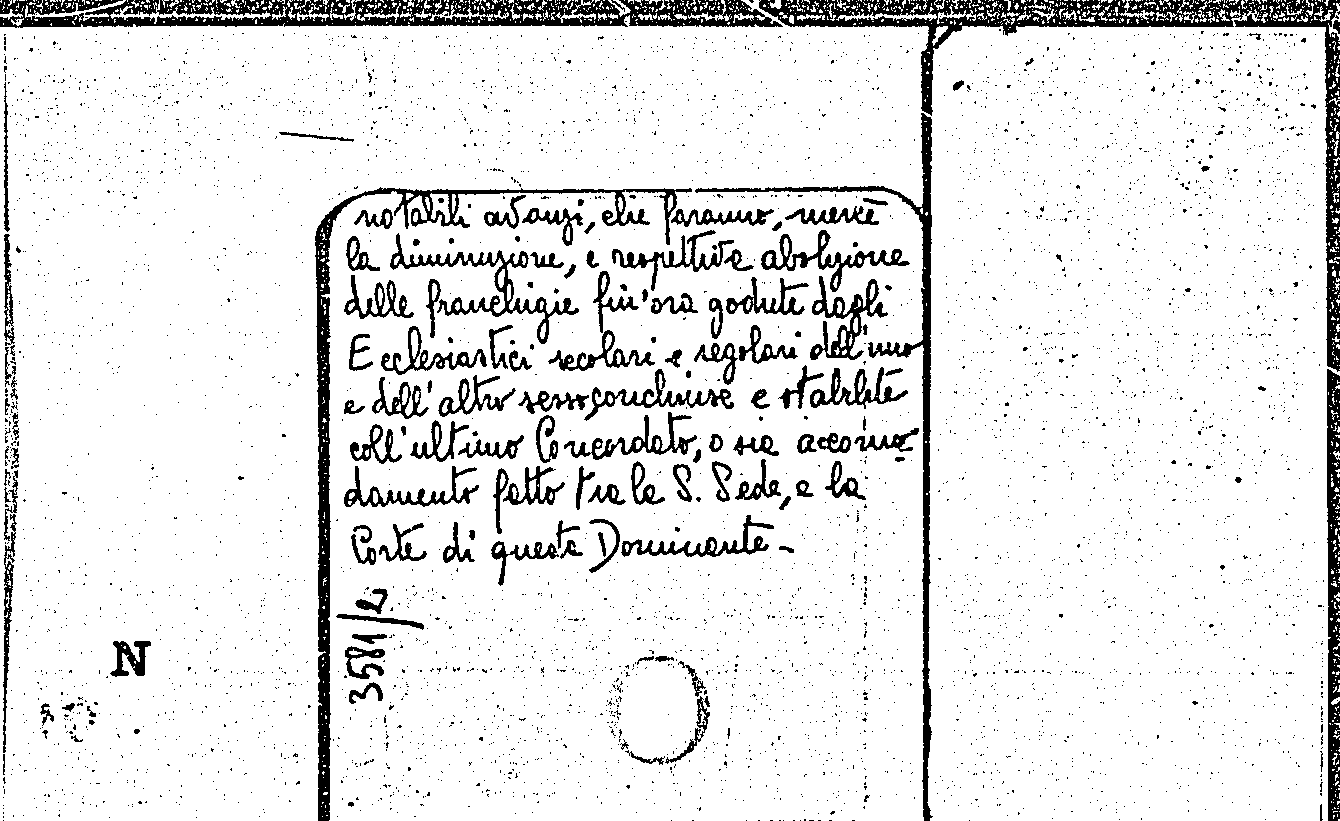 notabili avanzi, che faranno, mercè
la diminuzione, e respettiva abolizione
delle franchigie fin'ora godute dagli
Ecclesiastici secolari e regolari dell'uno
e dell'altro sesso, conchiuse e stabilite
coll'ultimo Concordato, o sia accomo-
damento fatto tra la S. Sede, e la
Corte di questa Dominante -
3581/2
N